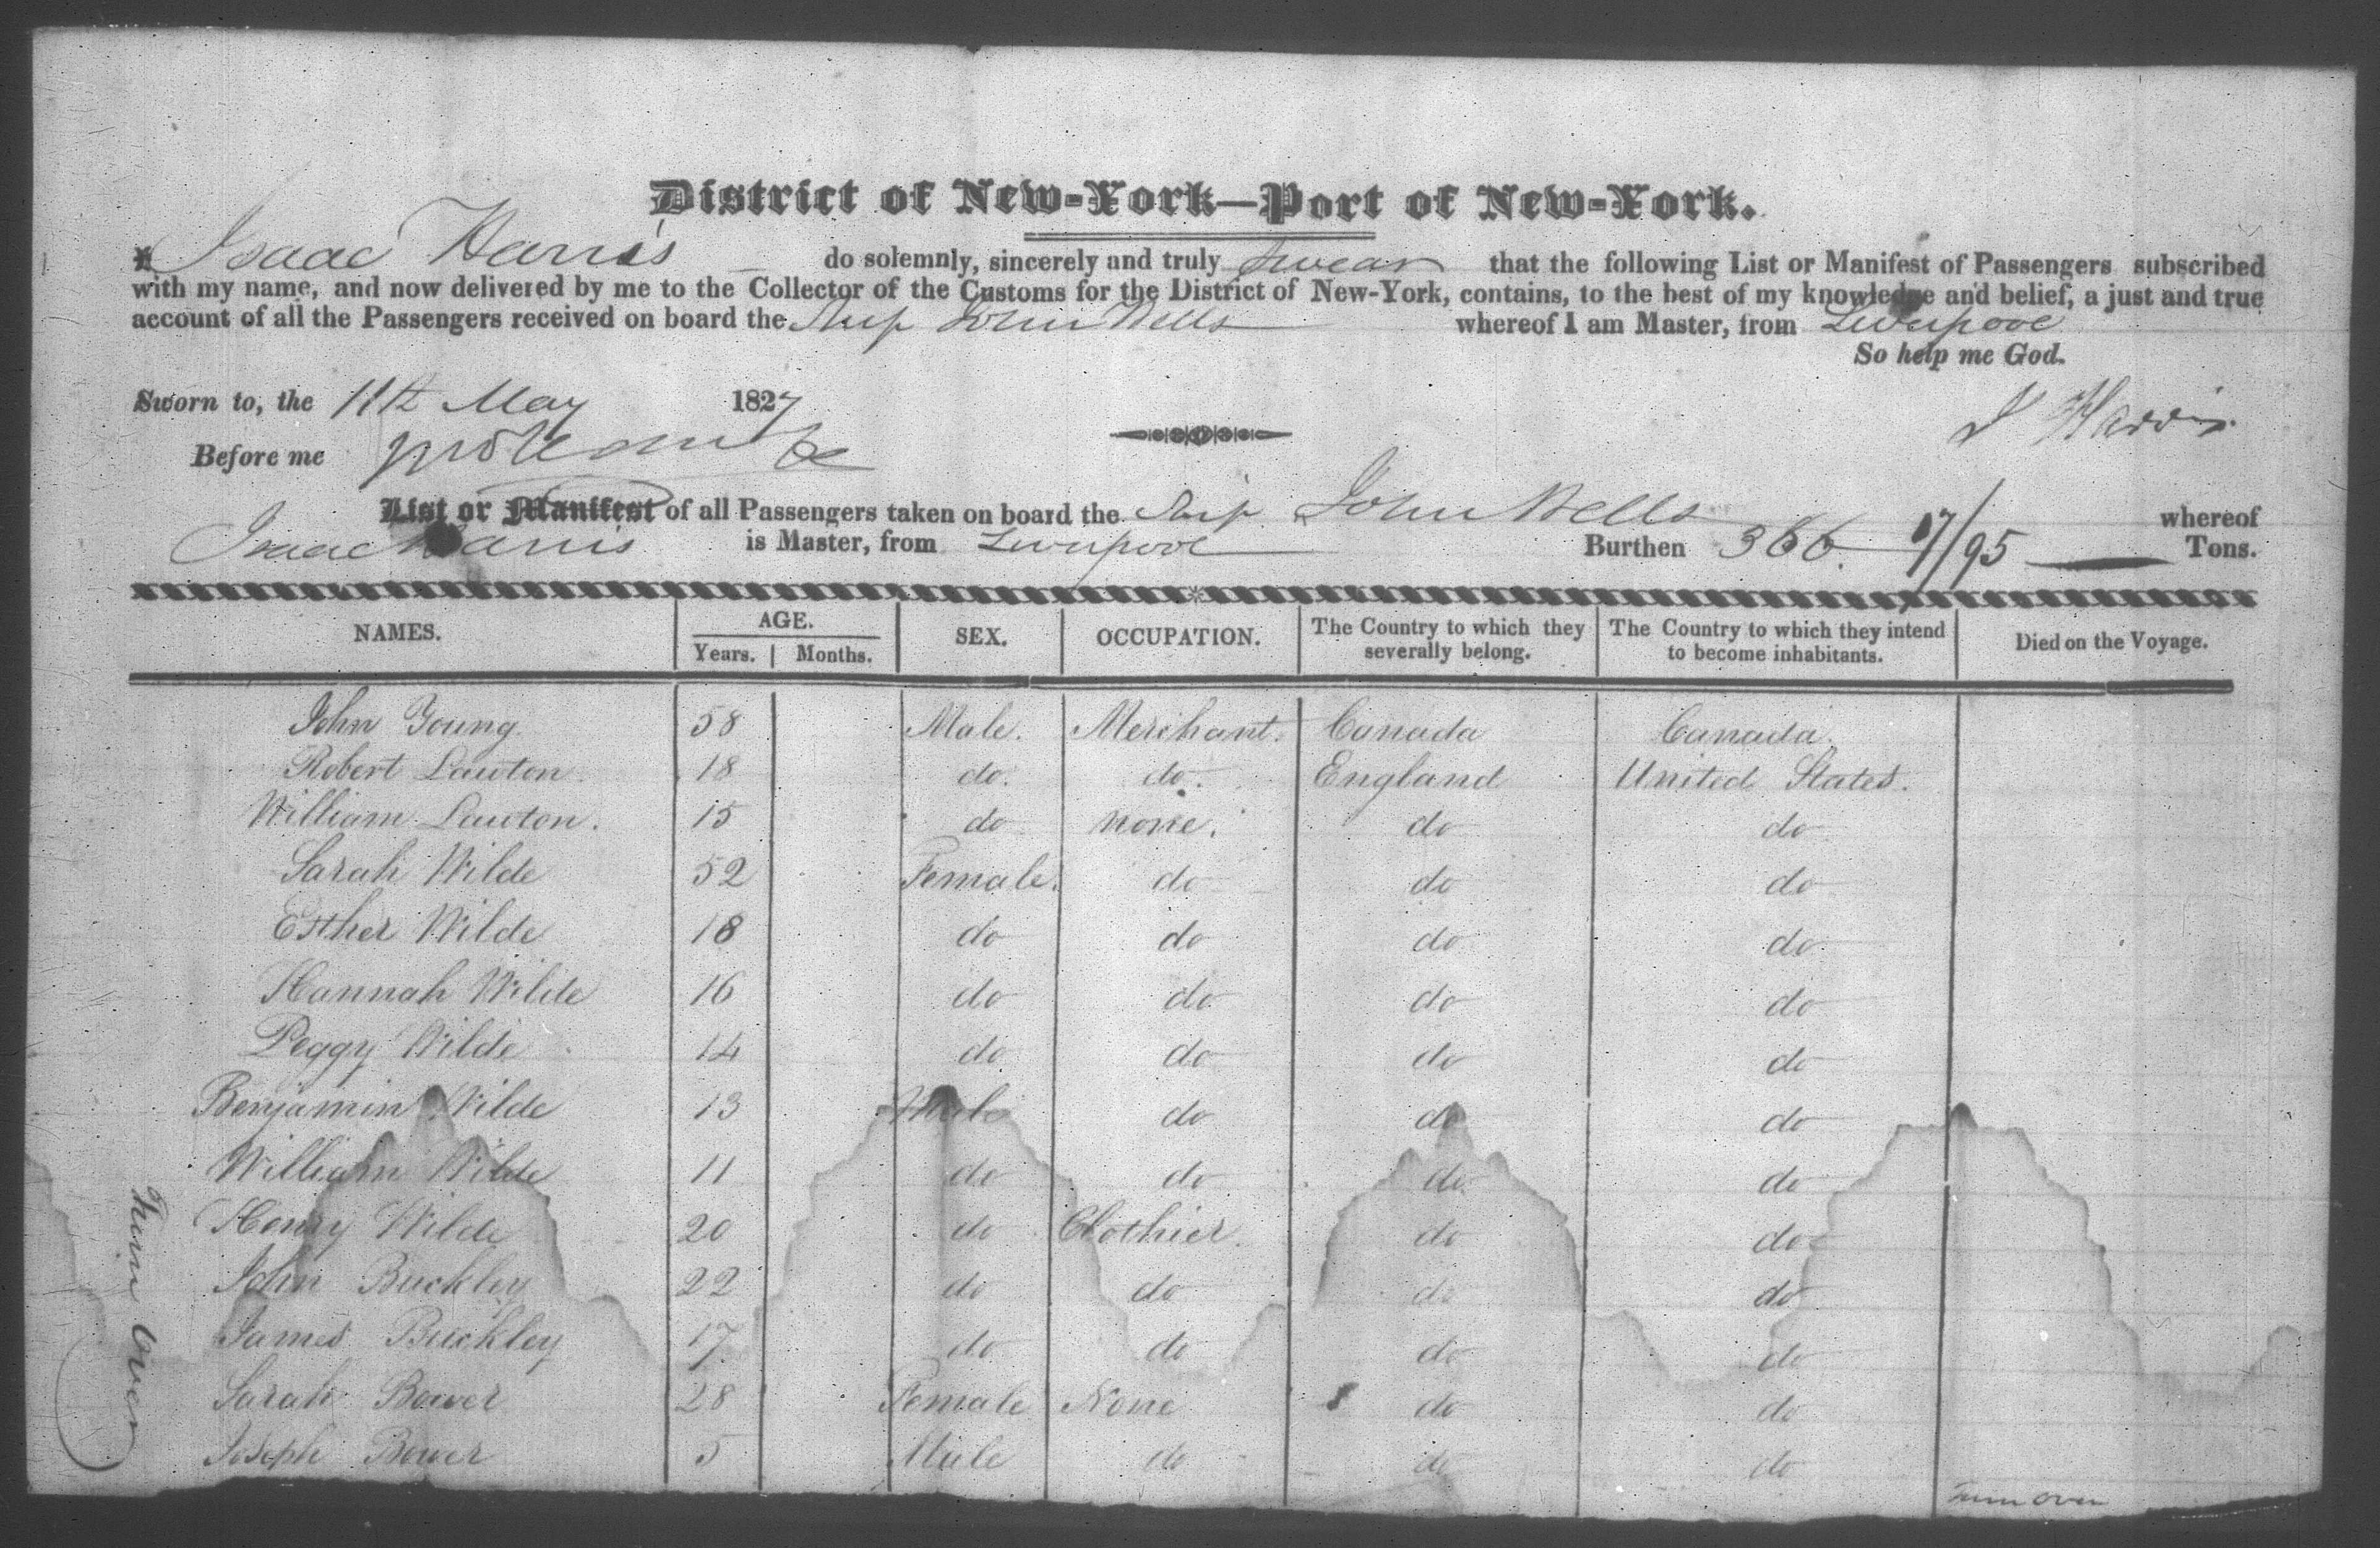 District of New-York—Port of New-York.
I Isaac Harris do solemnly, sincerely and truly swear that the following List or Manifest of Passengers subscribed
with my name, and now delivered by me to the Collector of the Customs for the District of New-York, contains, to the best of my knowledge and belief, a just and true
account of all the Passengers received on board the Ship John Wells whereof I am Master, from Liverpool
So help me God.
Sworn to, the 11th May 1827
I Harris
Before me
List or Manifest of all Passengers taken on board the Ship John Wells whereof
Isaac Harris is Master, from Liverpool Burthen 366 17/95 Tons.
NAMES. AGE. SEX. OCCUPATION. The Country to which they severally belong. The Country to which they intend to become inhabitants. Died on the Voyage.
Years. Months.
John Young 58 Male. Merchant. Canada Canada.
Robert Lawton. 18 do. do. England United States.
William Lawton. 15 do none. do do
Sarah Wilde 52 Female. do do do
Esther Wilde 18 do do do do
Hannah Wilde 16 do do do do
Peggy Wilde 14 do do do do
Benjamin Wilde 13 Male do do do
William Wilde 11 do do do do
Henry Wilde 20 do Clothier. do do
John Buckley 22 do do do do
James Buckley 17 do do do do
Sarah Bower 28 Female None do do
Joseph Bower 5 Male do do do
Turn over
Turn over